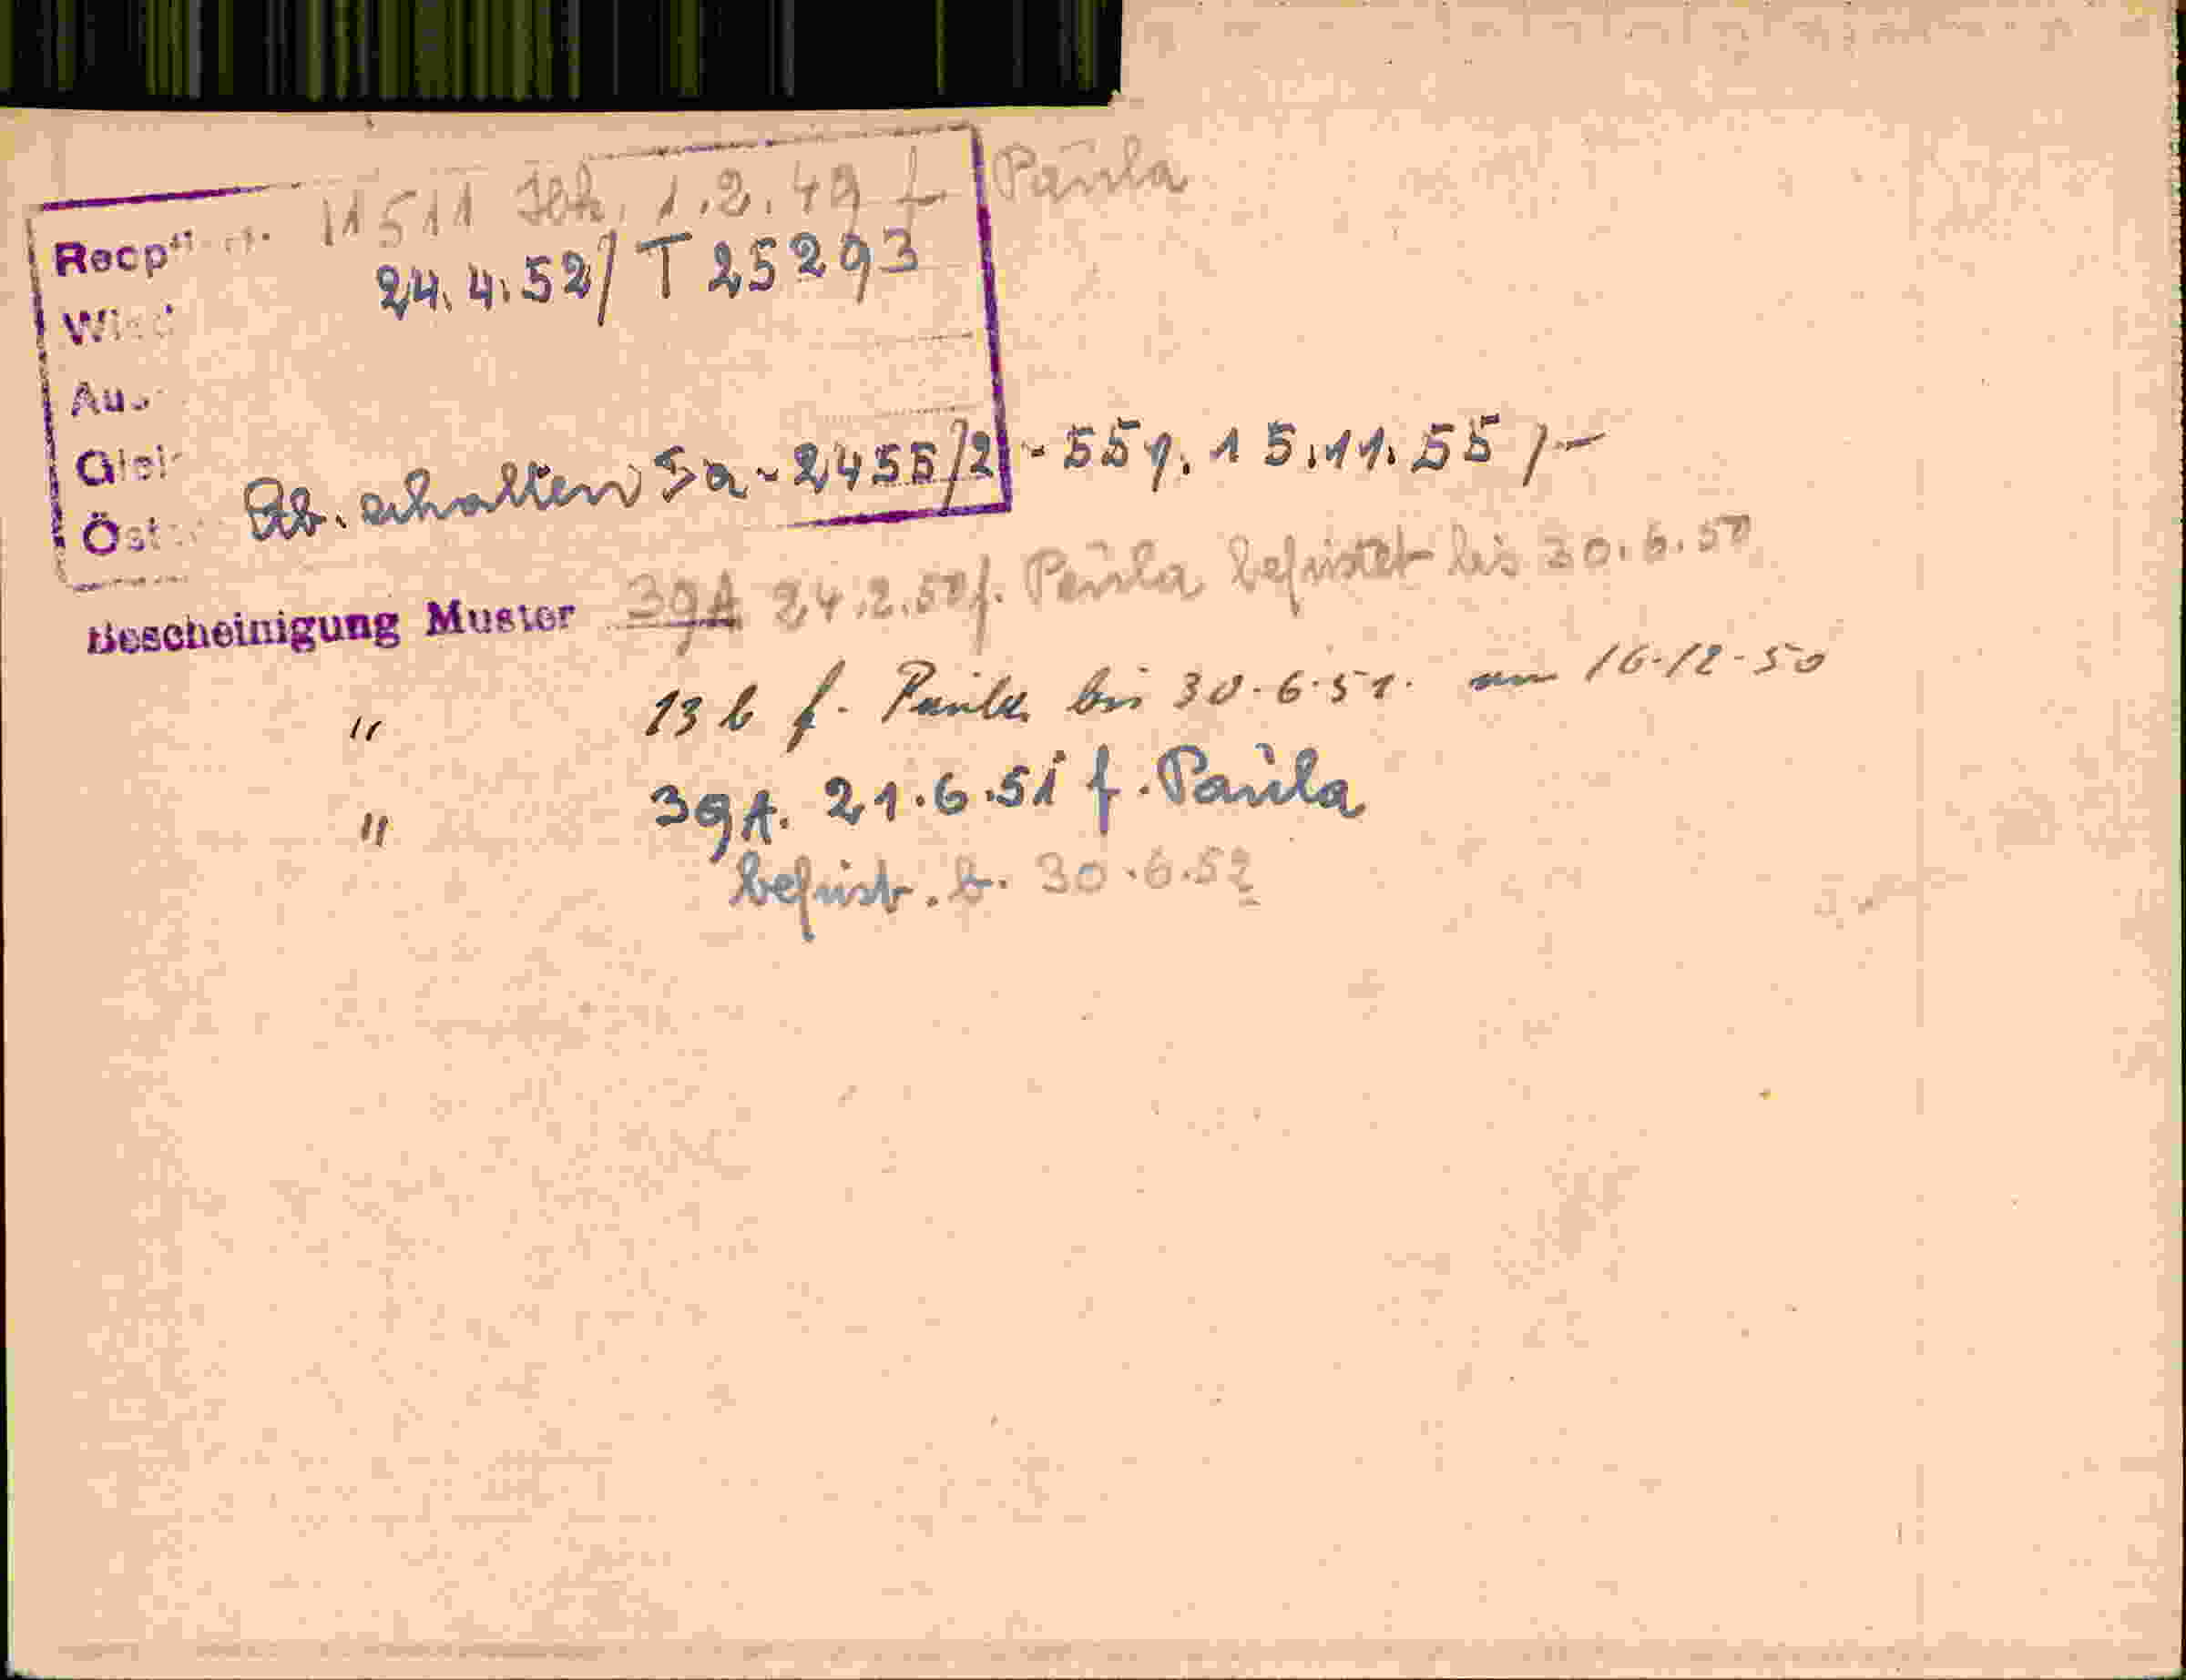 11511 Jbh. 1.2.49 f Paula
Recpt
24.4.52/T 25293
Wied
Aus
Glei
Öst
Ab. erhalten 5a-2455/2-551. 15.11.55 /-
Bescheinigung Muster 39A 24.2.50 f. Paula befristet bis 30.6.50
" 13 b f. Paula bis 30.6.51. am 16.12.50
" 39A. 21.6.51 f. Paula
befrist. b. 30.6.52